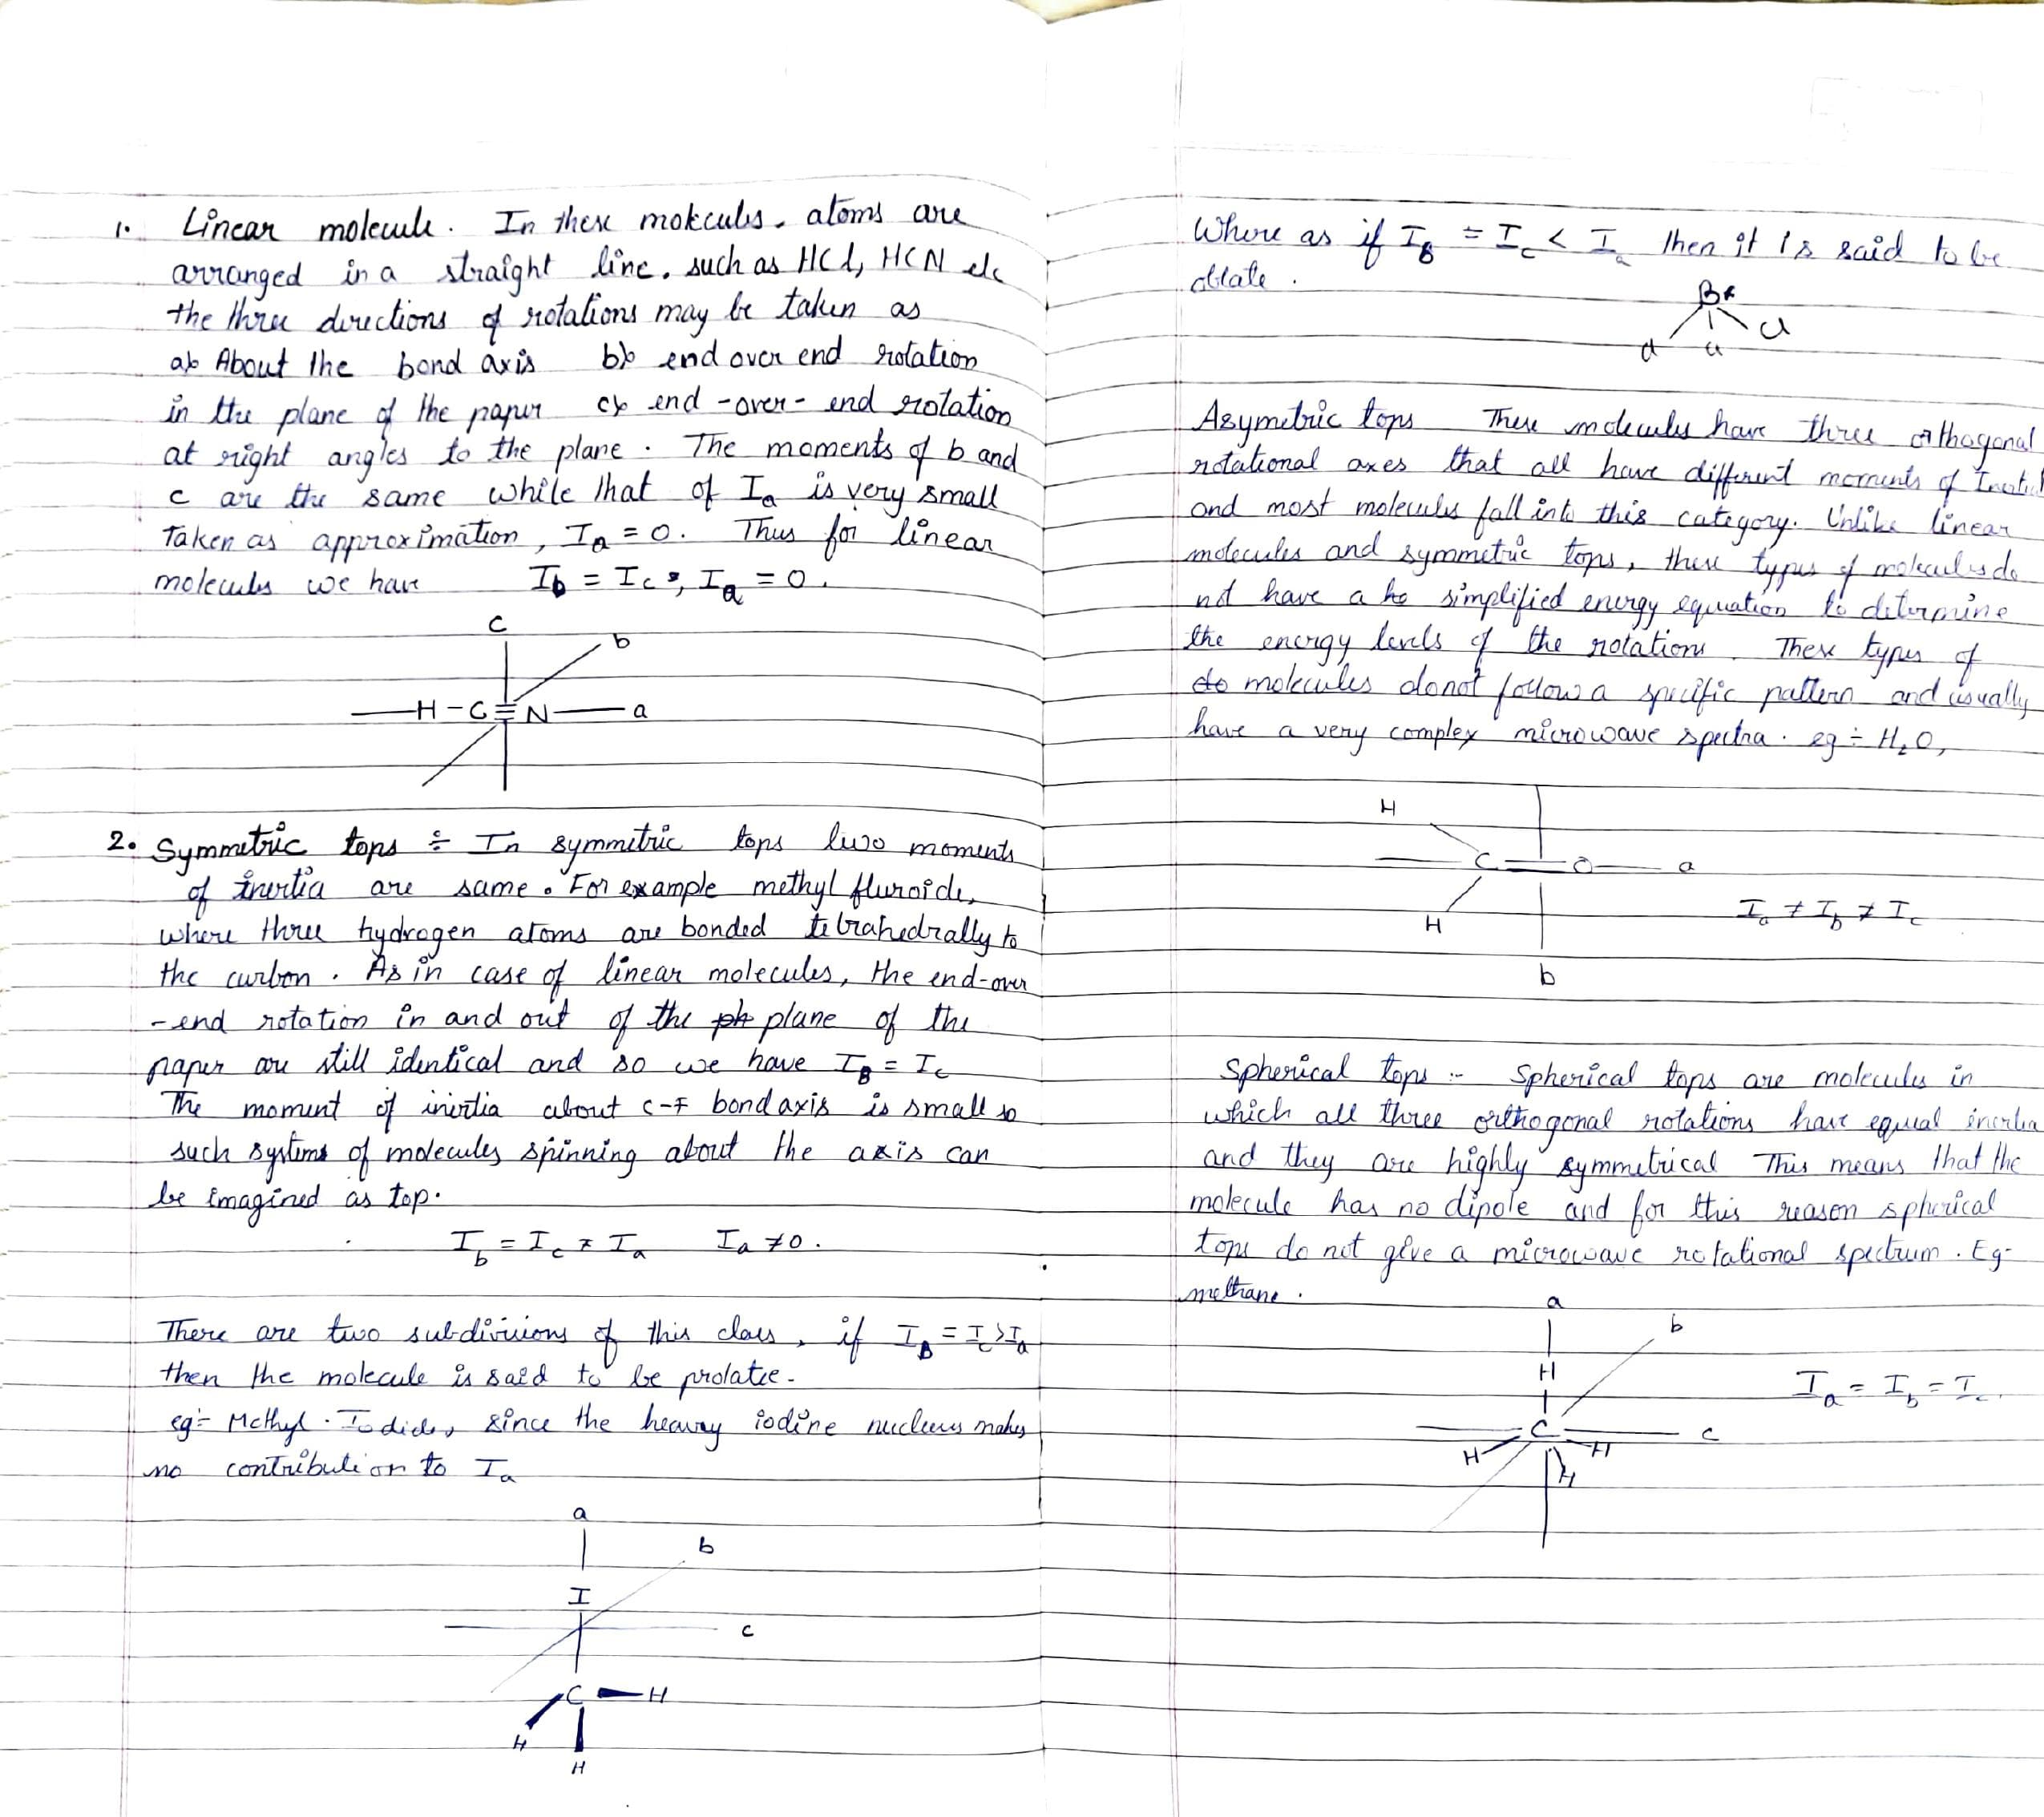 1. Linear molecule. In these molecules. atoms are
arranged in a straight line. such as HCl, HCN etc
the three directions of rotations may be taken as
a) About the bond axis b) end over end rotation
in the plane of the paper c) end -over- end rotation
at right angles to the plane. The moments of b and
c are the same while that of Ia is very small
Taken as approximation, Ia = 0. Thus for linear
molecules we have Ib = Ic, Ia = 0.
c
b
H-C≡N a
2. Symmetric tops ÷ In symmetric tops two moments
of inertia are same. For example methyl fluroide,
where three hydrogen atoms are bonded tetrahedrally to
the carbon. As in case of linear molecules, the end-over
-end rotation in and out of the ph plane of the
paper are still identical and so we have IB = Ic
The moment of inertia about c-F bond axis is small so
such systems of molecules spinning about the axis can
be imagined as top.
Ib = Ic ≠ Ia Ia ≠ 0.
There are two subdivisions of this class, if IB = Ic > Ia
then the molecule is said to be prolate.
eg:- Methyl Iodide, since the heavy iodine nucleus makes
no contribution to Ia
a
b
I
c
C H
H
H
Where as if IB = Ic < Ia then it is said to be
oblate.
Cl Cl Cl
Asymetric tops These molecules have three orthogonal
rotational axes that all have different moments of
and most molecules fall into this category. Unlike linear
molecules and symmetric tops, these types of molecules do
not have a simplified energy equation to determine
the energy levels of the rotations. These types of
do molecules donot follow a specific pattern and usually
have a very complex microwave spectra. eg ÷ H2O,
H
C O a
H
Ia ≠ Ib ≠ Ic
b
Spherical tops :- Spherical tops are molecules in
which all three orthogonal rotations have equal inertia
and they are highly symmetrical This means that the
molecule has no dipole and for this reason spherical
tops do not give a microwave rotational spectrum. Eg-
methane.
a
b
H
Ia = Ib = Ic.
C c
H H
H